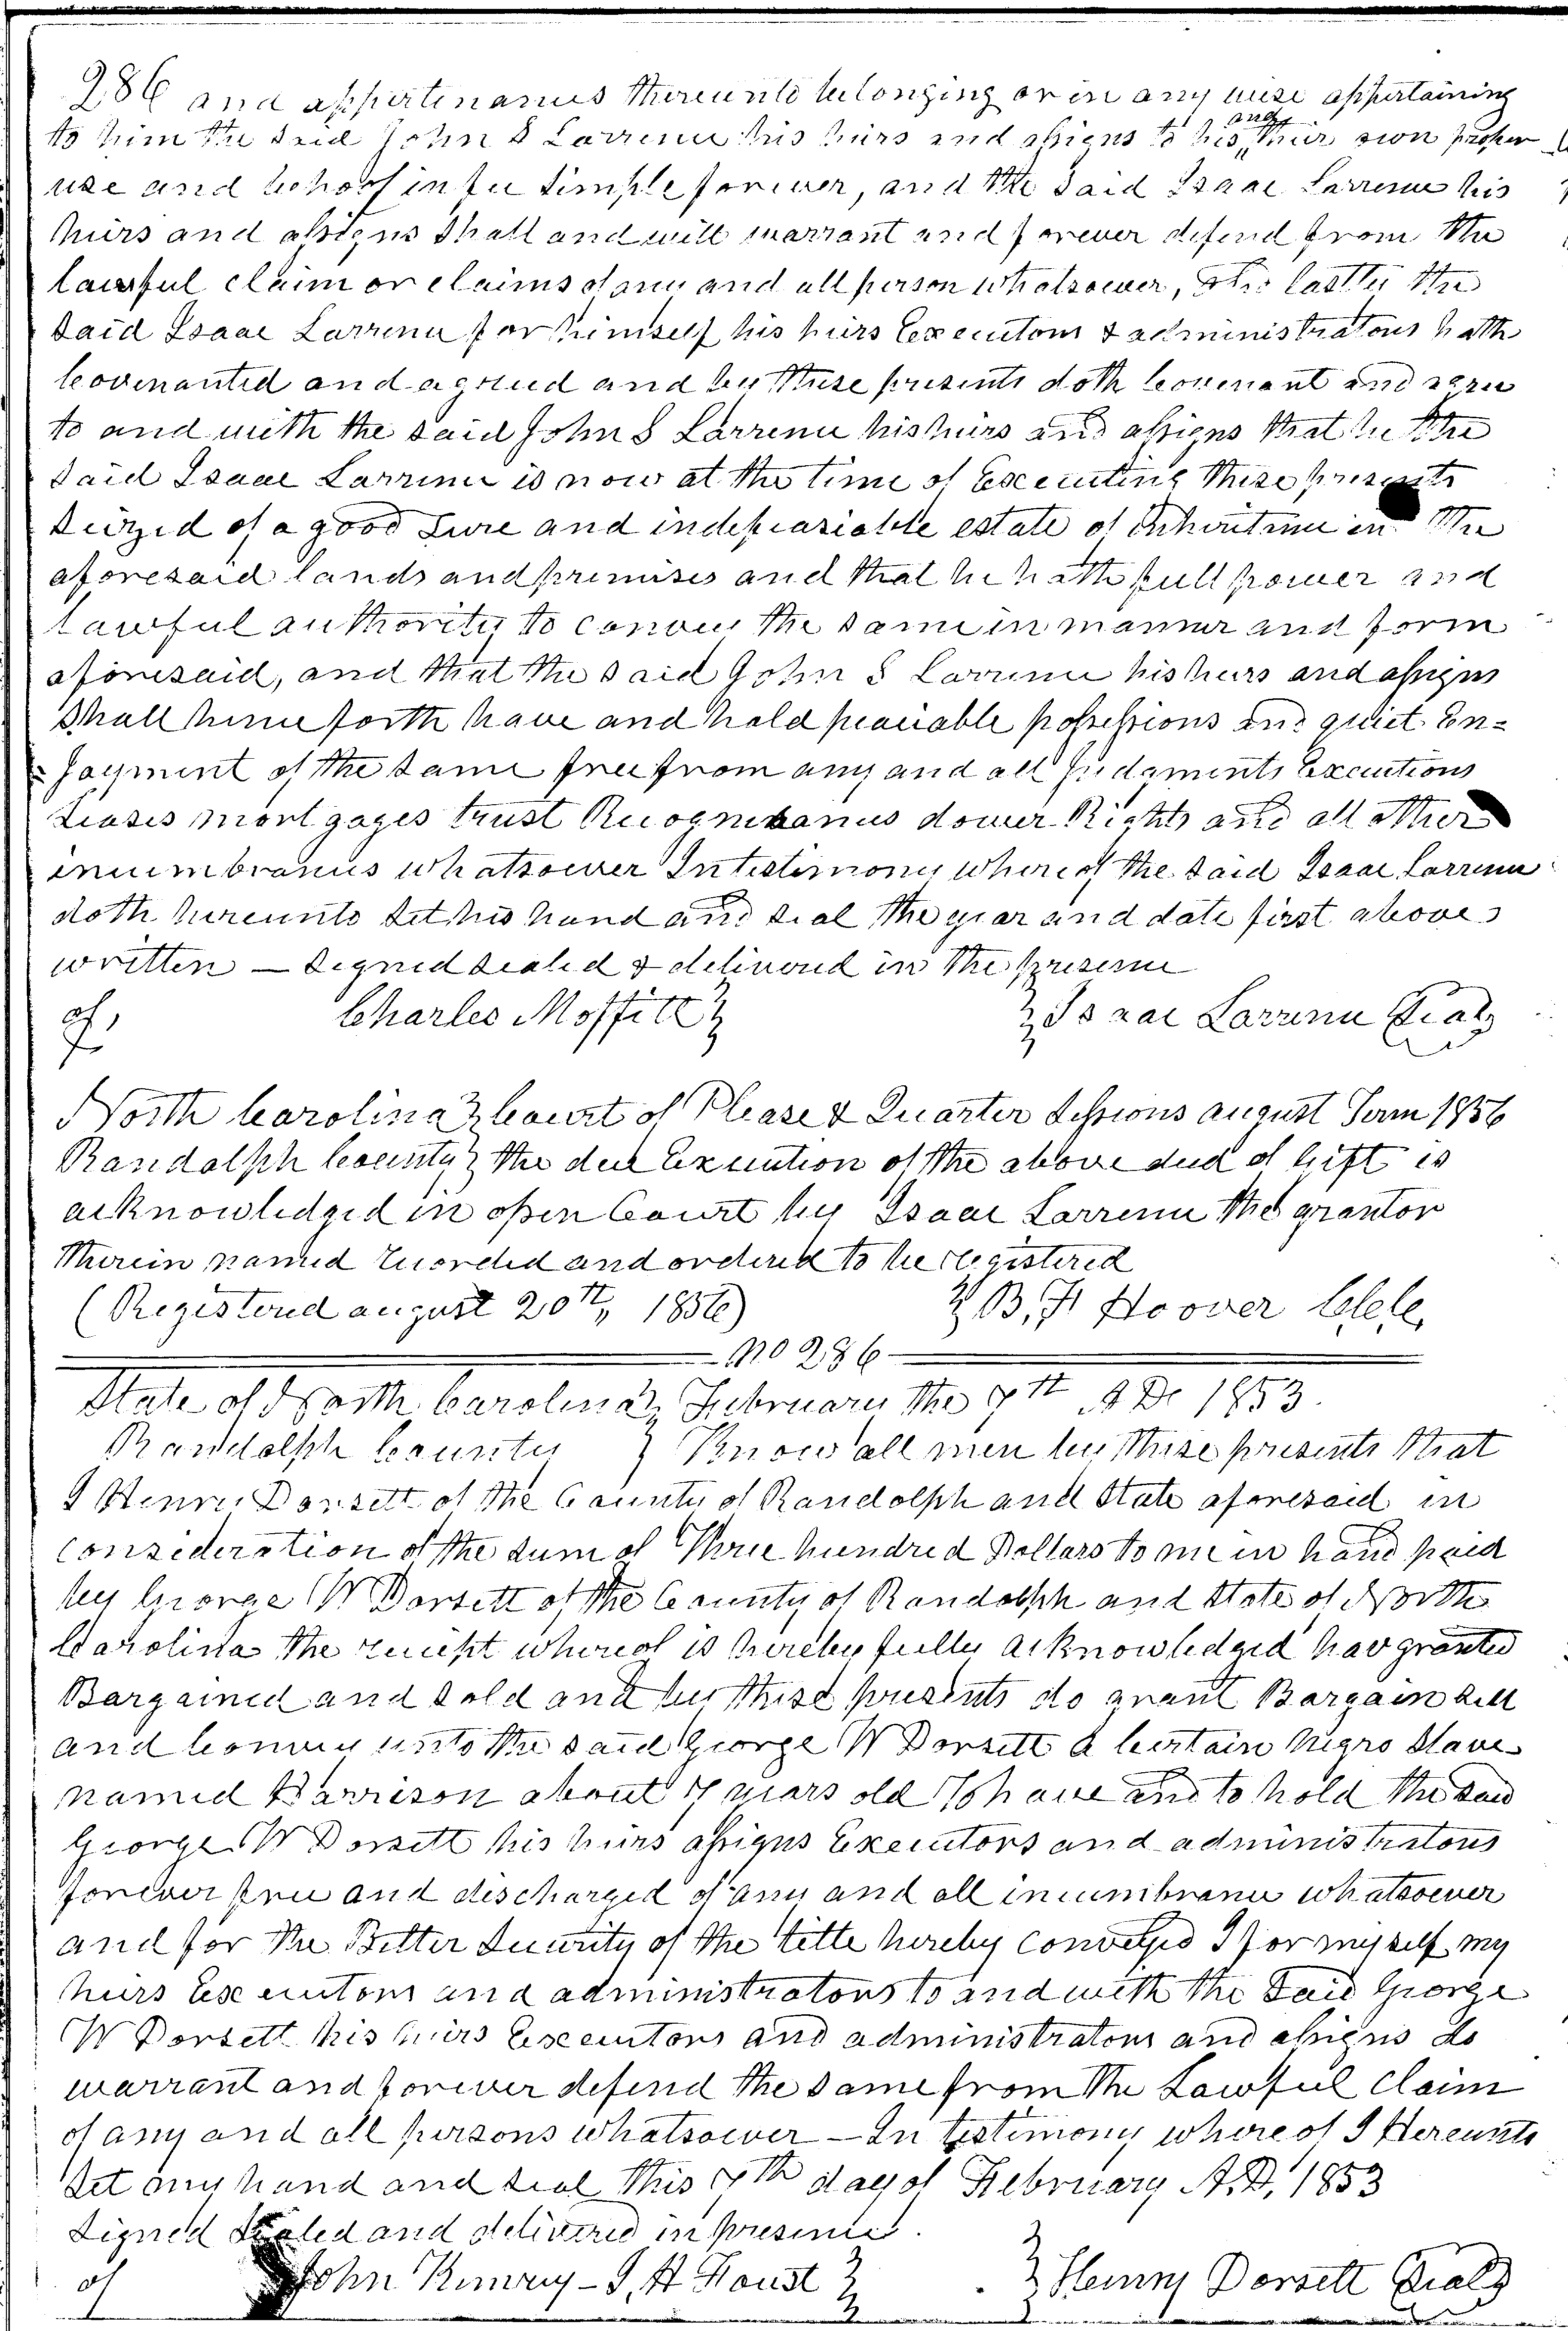 286 and appertinances thereunto belonging or in any wise appertaining
to him the said John S Lorrence his heirs and assigns to his and their own proper
use and behoof in fee simple forever, and the said Isaac Larrence his
heirs and assigns shall and will warrant and forever defend from the
lawful claim or claims of any and all person whatsoever, And lastly the
said Isaac Larrence for himself his heirs Executors & administrators hath
Covenanted and agreed and by these presents doth Covenant and agree
to and with the said John S Larrence his heirs and assigns that he the
said Isaac Larrence is now at the time of Executing these presents
Seized of a good Sure and indefeasiable estate of inheritance in the
aforesaid lands and premises and that he hath full power and
lawful authority to convey the same in manner and form
aforesaid, and that the said John S Lorrence his heirs and assigns
Shall hence forth have and hold peaceable possessions and quiet En-
-joyment of the same free from any and all Judgments Executions
Leases mortgages trust Recognizances dower Rights and all other
incumbrances whatsoever In testimony whereof the said Isaac Larrence
doth hereunto set his hand and seal the year and date first above
written — Signed sealed & delivered in the presence
of, Charles Moffitt Isaac Larrence Seal
North Carolina Court of Please & Quarter Sessions august Term 1856
Randolph County the due Execution of the above deed of Gift is
acknowledged in open Court by Isaac Larrence the grantor
therein named recorded and ordered to be registered
(Registered august 20th, 1856) B, F, Hoover C.C.C.
No 286
State of North Carolina February the 7th A D 1853.
Randolph County Know all men by these presents that
I Henry Dorsett of the County of Randolph and State aforesaid in
consideration of the sum of Three hundred Dollars to me in hand paid
by George W Dorsett of the County of Randolph and State of North
Carolina the receipt whereof is hereby fully acknowledged hav granted
Bargained and Sold and by these presents do grant Bargain Sell
and Convey unto the said George W Dorsett A Certain Negro Slave
named Harrison about 7 years old To have and to hold the said
George W Dorsett his heirs assigns Executors and administrators
forever free and discharged of any and all incumbrance whatsoever
and for the Better Security of the title hereby conveyed I for myself my
heirs Executors and administrators to and with the Said George
W Dorsett his heirs Executors and administrators and assigns do
warrant and forever defend the same from the Lawful Claim
of any and all persons whatsoever — In testimony whereof I Hereunto
Set my hand and seal this 7th day of February A.D. 1853
Signed Sealed and delivered in presence.
of John Kimrey - I, H Foust Henry Dorsett Seal